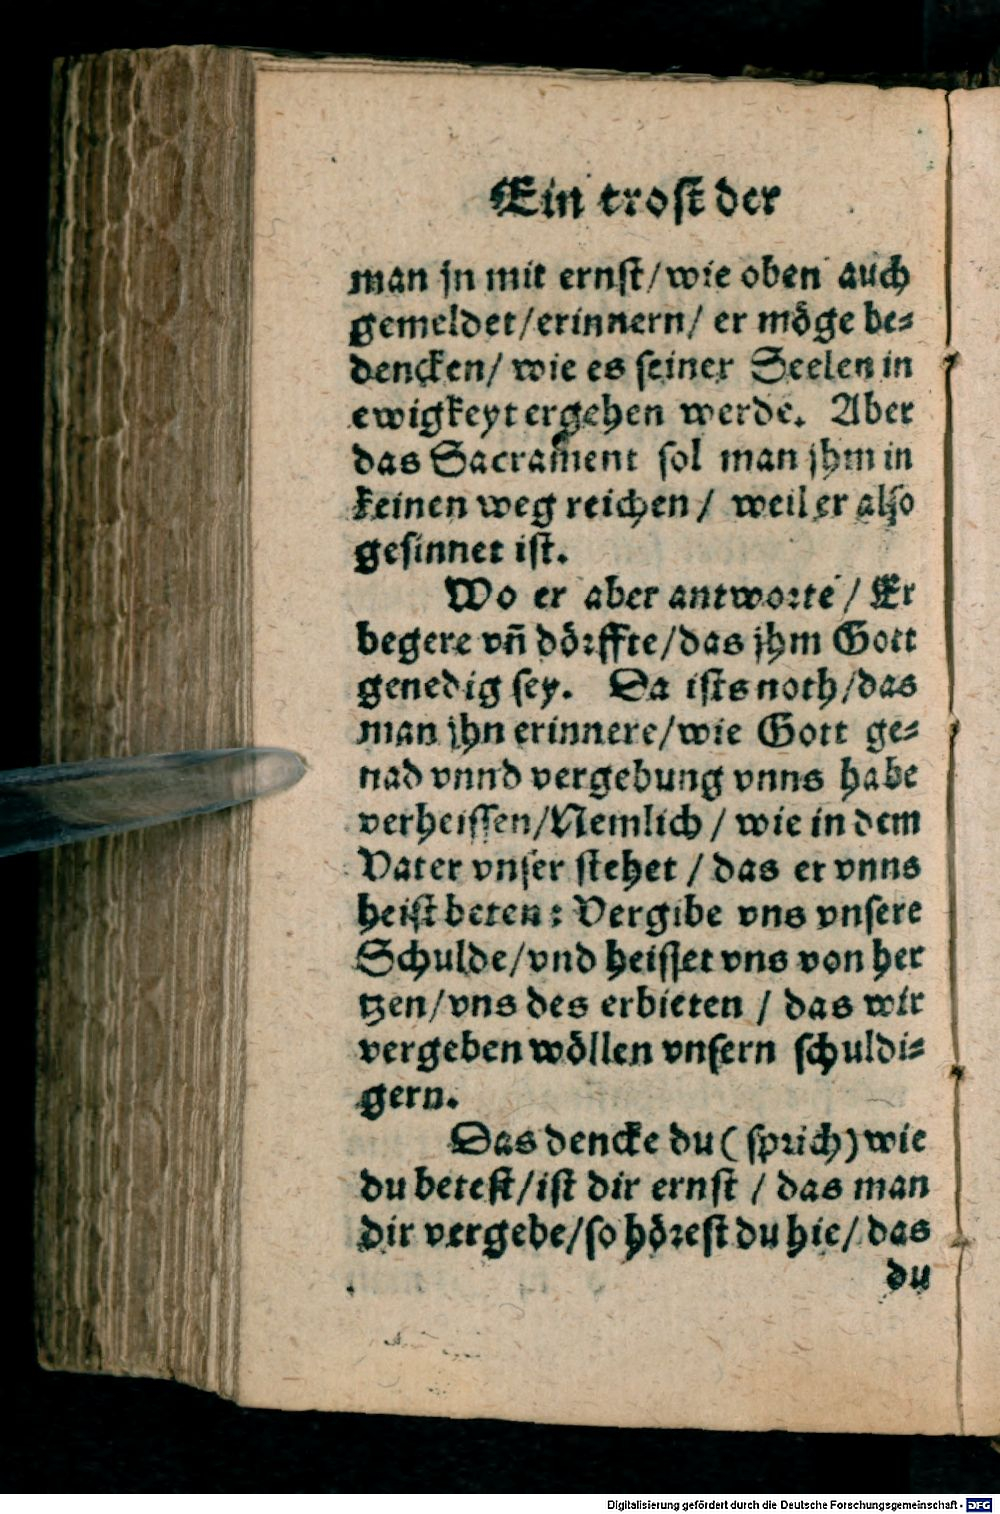 Ein trost der
man jn mit ernst/wie oben auch
gemeldet/erinnern/ er möge be⸗
dencken/ wie es seiner Seelen in
ewigkeyt ergehen werde. Aber
das Sacrament sol man jhm in
keinen weg reichen/ weil er also
gesinnet ist.
Wo er aber antworte/ Er
begere vñ dörffte/das jhm Gott
genedig sey. Da ists noth/das
man jhn erinnere/wie Gott ge⸗
nad vnnd vergebung vnns habe
verheissen/Nemlich/ wie in dem
Vater vnser stehet/ das er vnns
heist beten: Vergibe vns vnsere
Schulde/vnd heisset vns von her
tzen/vns des erbieten/ das wir
vergeben wöllen vnsern schuldi⸗
gern.
Das dencke du (sprich) wie
du betest/ist dir ernst/ das man
dir vergebe/so hörest du hie/ das
du
Digitalisierung gefördert durch die Deutsche Forschungsgemeinschaft - DFG